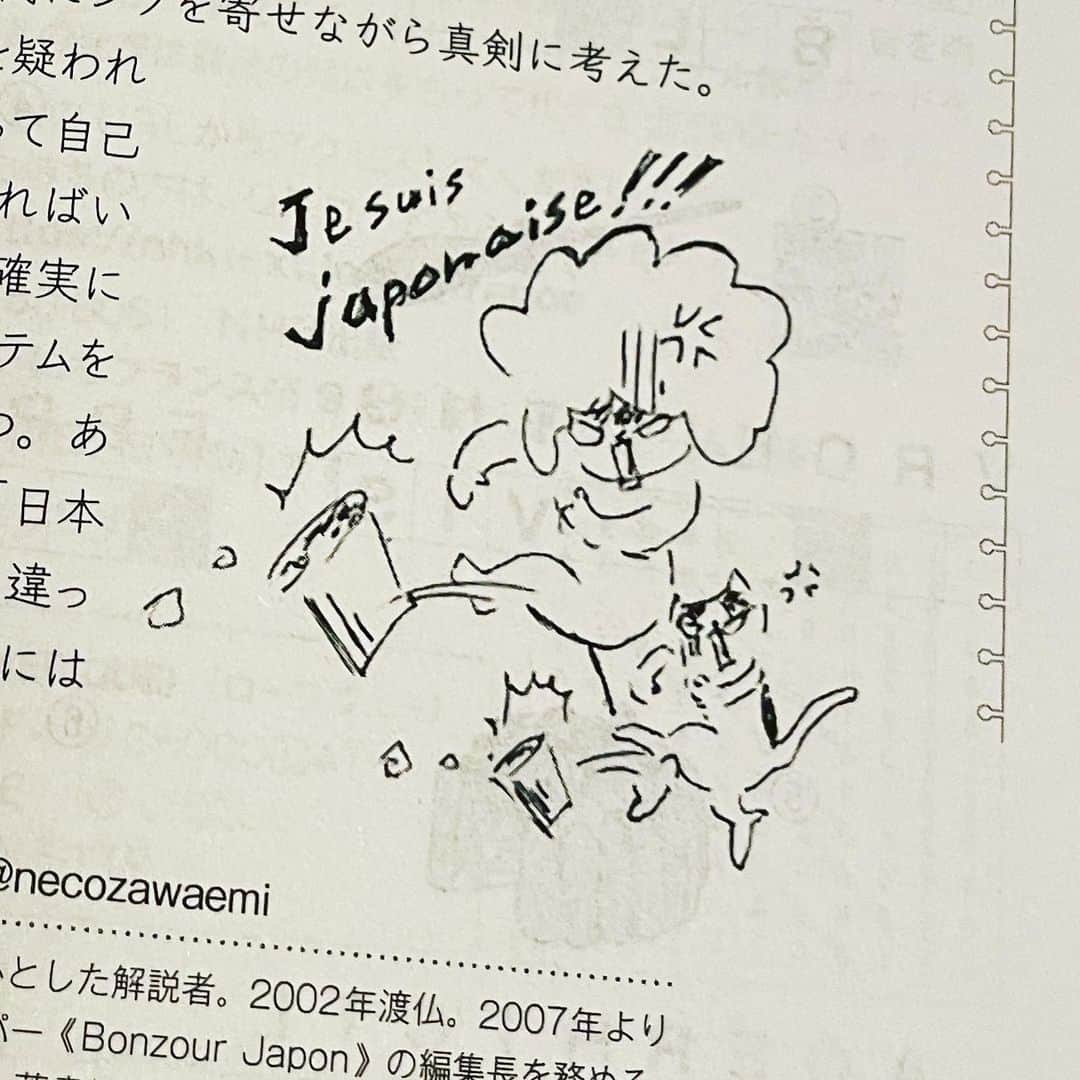 を寄せながら真剣に考えた。
疑われ
て自己
ればい
確実に
テムを
つ。あ
「日本
違っ
には
Je suis
japonaise!!!
@necozawaemi
とした解説者。2002年渡仏。2007年より
パー《Bonzour Japon》の編集長を務める